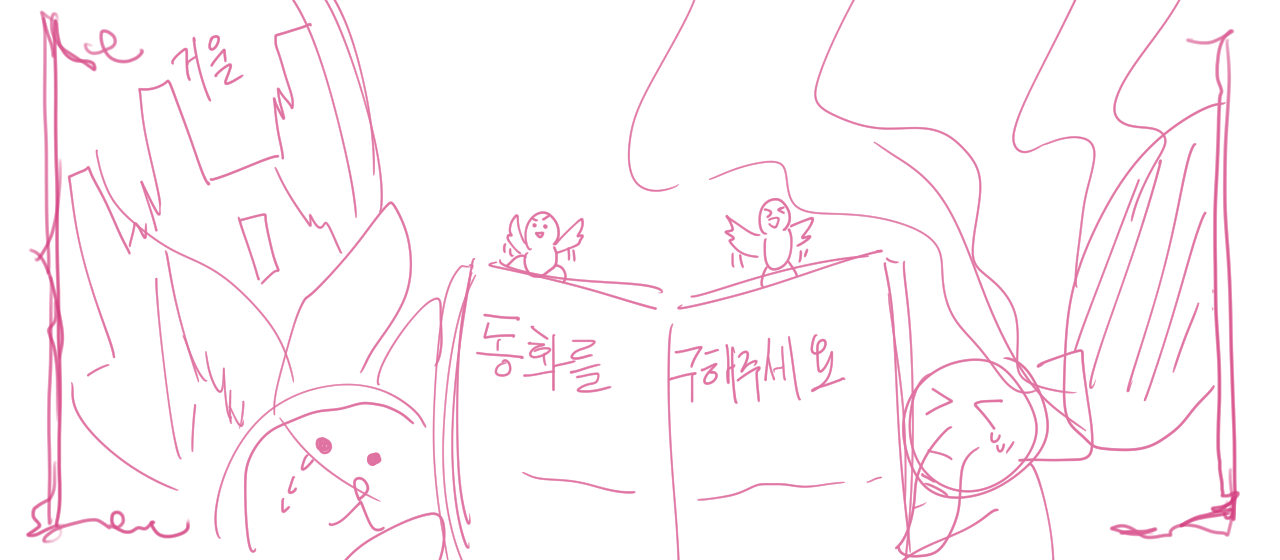 거울
동화를 구해주세요